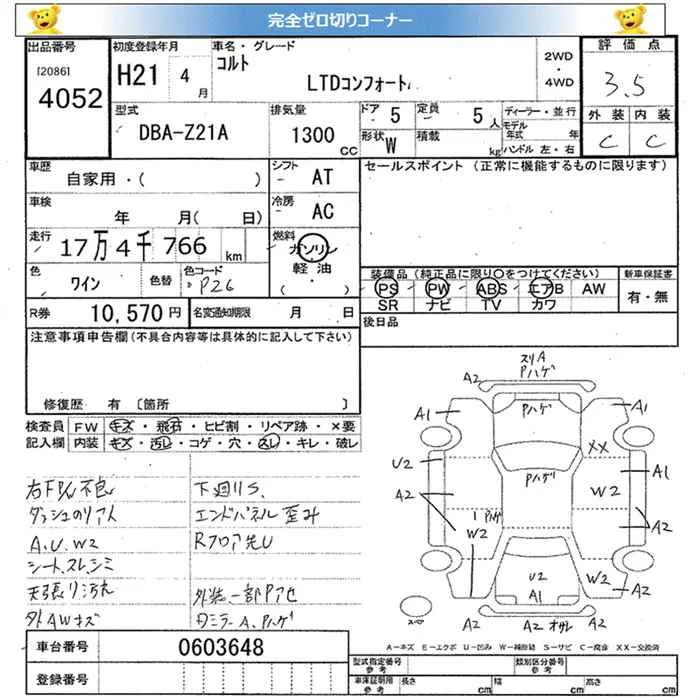 完全ゼロ切りコーナー
出品番号
[2086]
4052
初度登録年月
H21 4月
車名・グレード
コルト
LTDコンフォート
2WD
・
4WD
評価点
3.5
外装 内装
C C
型式
DBA-Z21A
排気量
1300 CC
ドア 5
定員 5人
形状 W
積載 kg
ディーラー・並行
モデル年式 年
ハンドル 左・右
車歴
自家用・( )
シフト AT
車検
年 月( 日)
冷房 AC
走行
17万4千766 km
燃料
ガソリン
軽油
( ・ )
色
ワイン
色替
色コード
P26
R券 10,570円
名変通知期限 月 日
セールスポイント (正常に機能するものに限ります)
装備品(純正品に限り○をつけてください)
PS PW ABS エアB AW
SR ナビ TV カワ
新車保証書
有・無
後日品
注意事項申告欄(不具合内容等は具体的に記入して下さい)
修復歴 有 〔箇所 〕
検査員記入欄
FW キズ・飛石・ヒビ割・リペア跡・×要
内装 キズ・汚レ・コゲ・穴・スレ・キレ・破レ
右FPW不良
ダッシュのリアト
A、U、W2
シート、スレ、シミ
天張り汚れ
外AWキズ
下廻りS、
エンドパネル歪み
Rフロア先U
外装一部Pアセ
ダミラーA、Pハゲ
スリA
Pハゲ
A2
A2
A1
Pハゲ
A1
XX
U2
Pハゲ
A1
A2
W2
A2
1 Pハゲ
W2
U2
A1
W2
A2
A2
スペア
A2
A2 オサレ
A2
A-キズ E-エクボ U-凹み W-補修跡 S-サビ C-腐食 XX-交換済
車台番号 0603648
登録番号
型式指定番号
参考
類別区分番号
参考
車庫証明用
参考
長さ cm
幅 cm
高さ cm